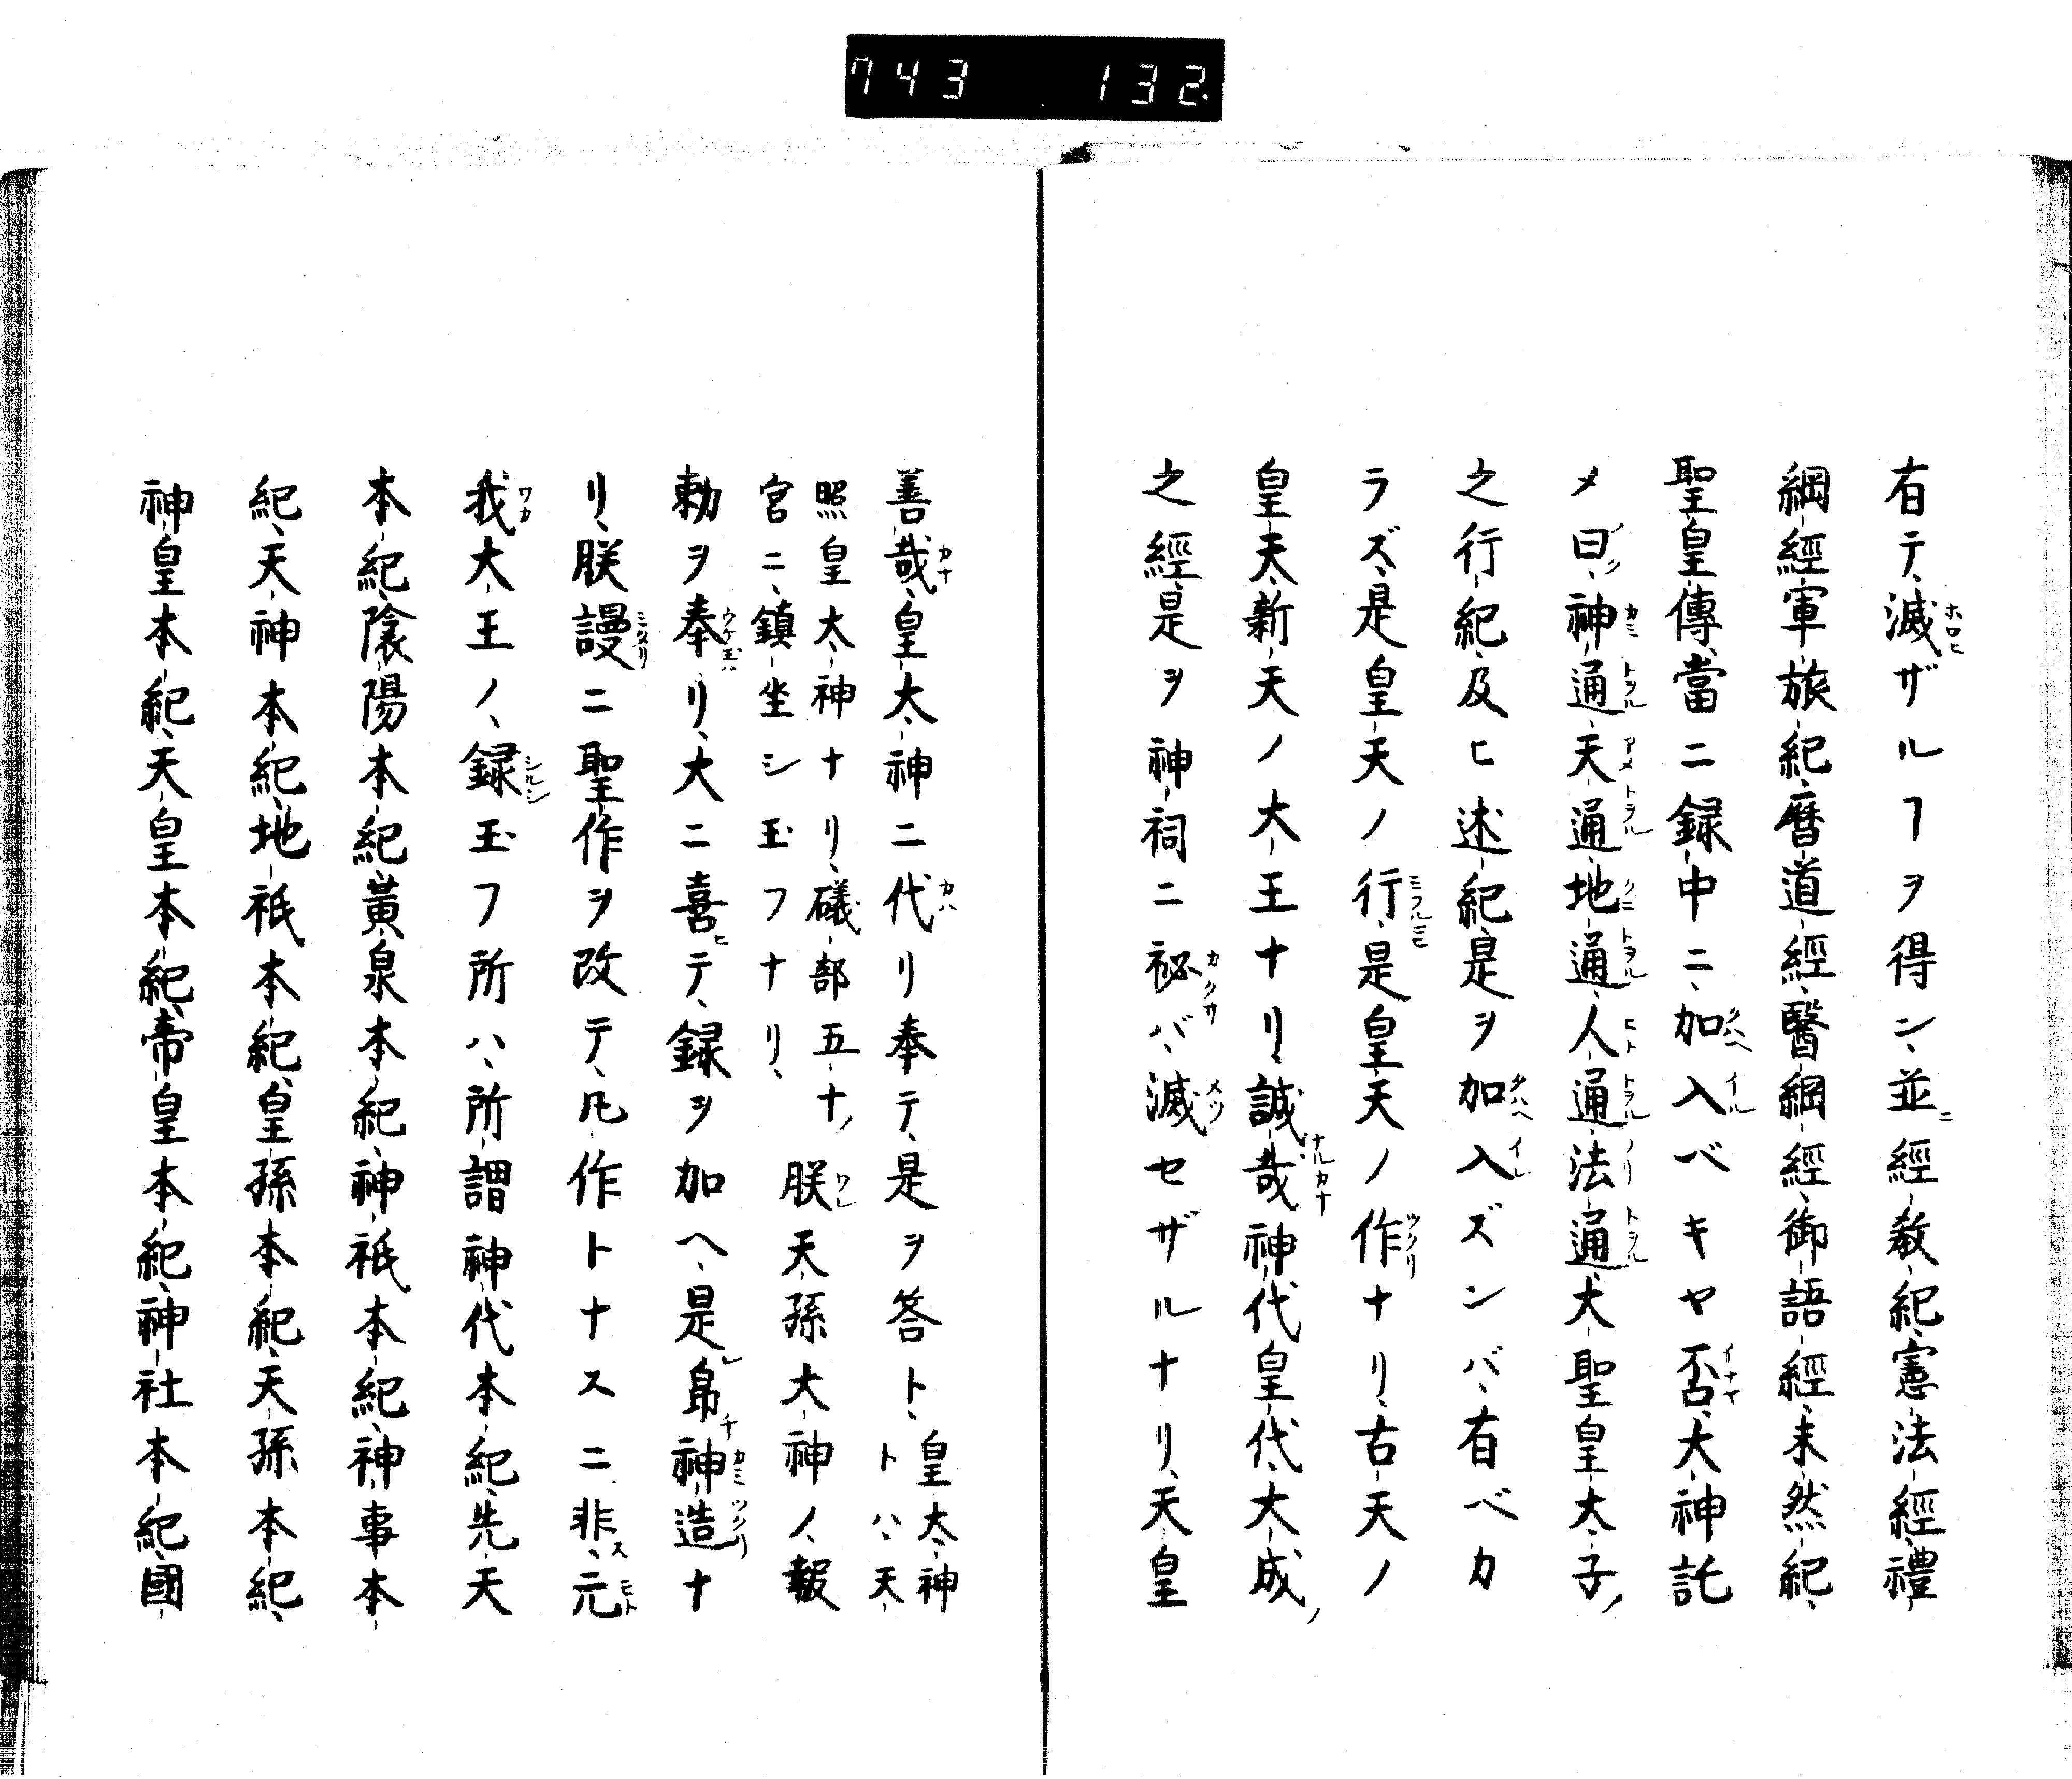 743 132
有テ、滅ザルヿヲ得ン、並經教紀、憲法經、禮
綱經、軍旅紀、暦道經、醫綱經、御語經、未然紀、
聖皇傳、當ニ録中ニ、加入ベキヤ否、大神託
メ曰、神通、天通、地通、人通、法通、大聖皇太子、
之行紀、及ヒ述紀、是ヲ加入ズンバ、有ベカ
ラズ、是皇天ノ行、是皇天ノ作ナリ、古天ノ
皇天、新天ノ大王ナリ、誠哉神代皇代、大成、
之經、是ヲ神祠ニ祕バ、滅セザルナリ、天皇
善哉、皇太神ニ代リ奉テ、是ヲ答ト、皇太神
トハ、天
照皇太神ナリ、礒部五十
宮ニ、鎮坐シ玉フナリ、
朕天孫大神ノ、報
勅ヲ奉リ、大ニ喜テ、録ヲ加ヘ、是帛神造ナ
リ、朕謾ニ聖作ヲ改テ、凡作トナスニ非、元
我大王ノ、録玉フ所ハ、所謂神代本紀、先天
本紀、陰陽本紀、黃泉本紀、神祇本紀、神事本
紀、天神本紀、地祇本紀、皇孫本紀、天孫本紀、
神皇本紀、天皇本紀、帝皇本紀、神社本紀、國